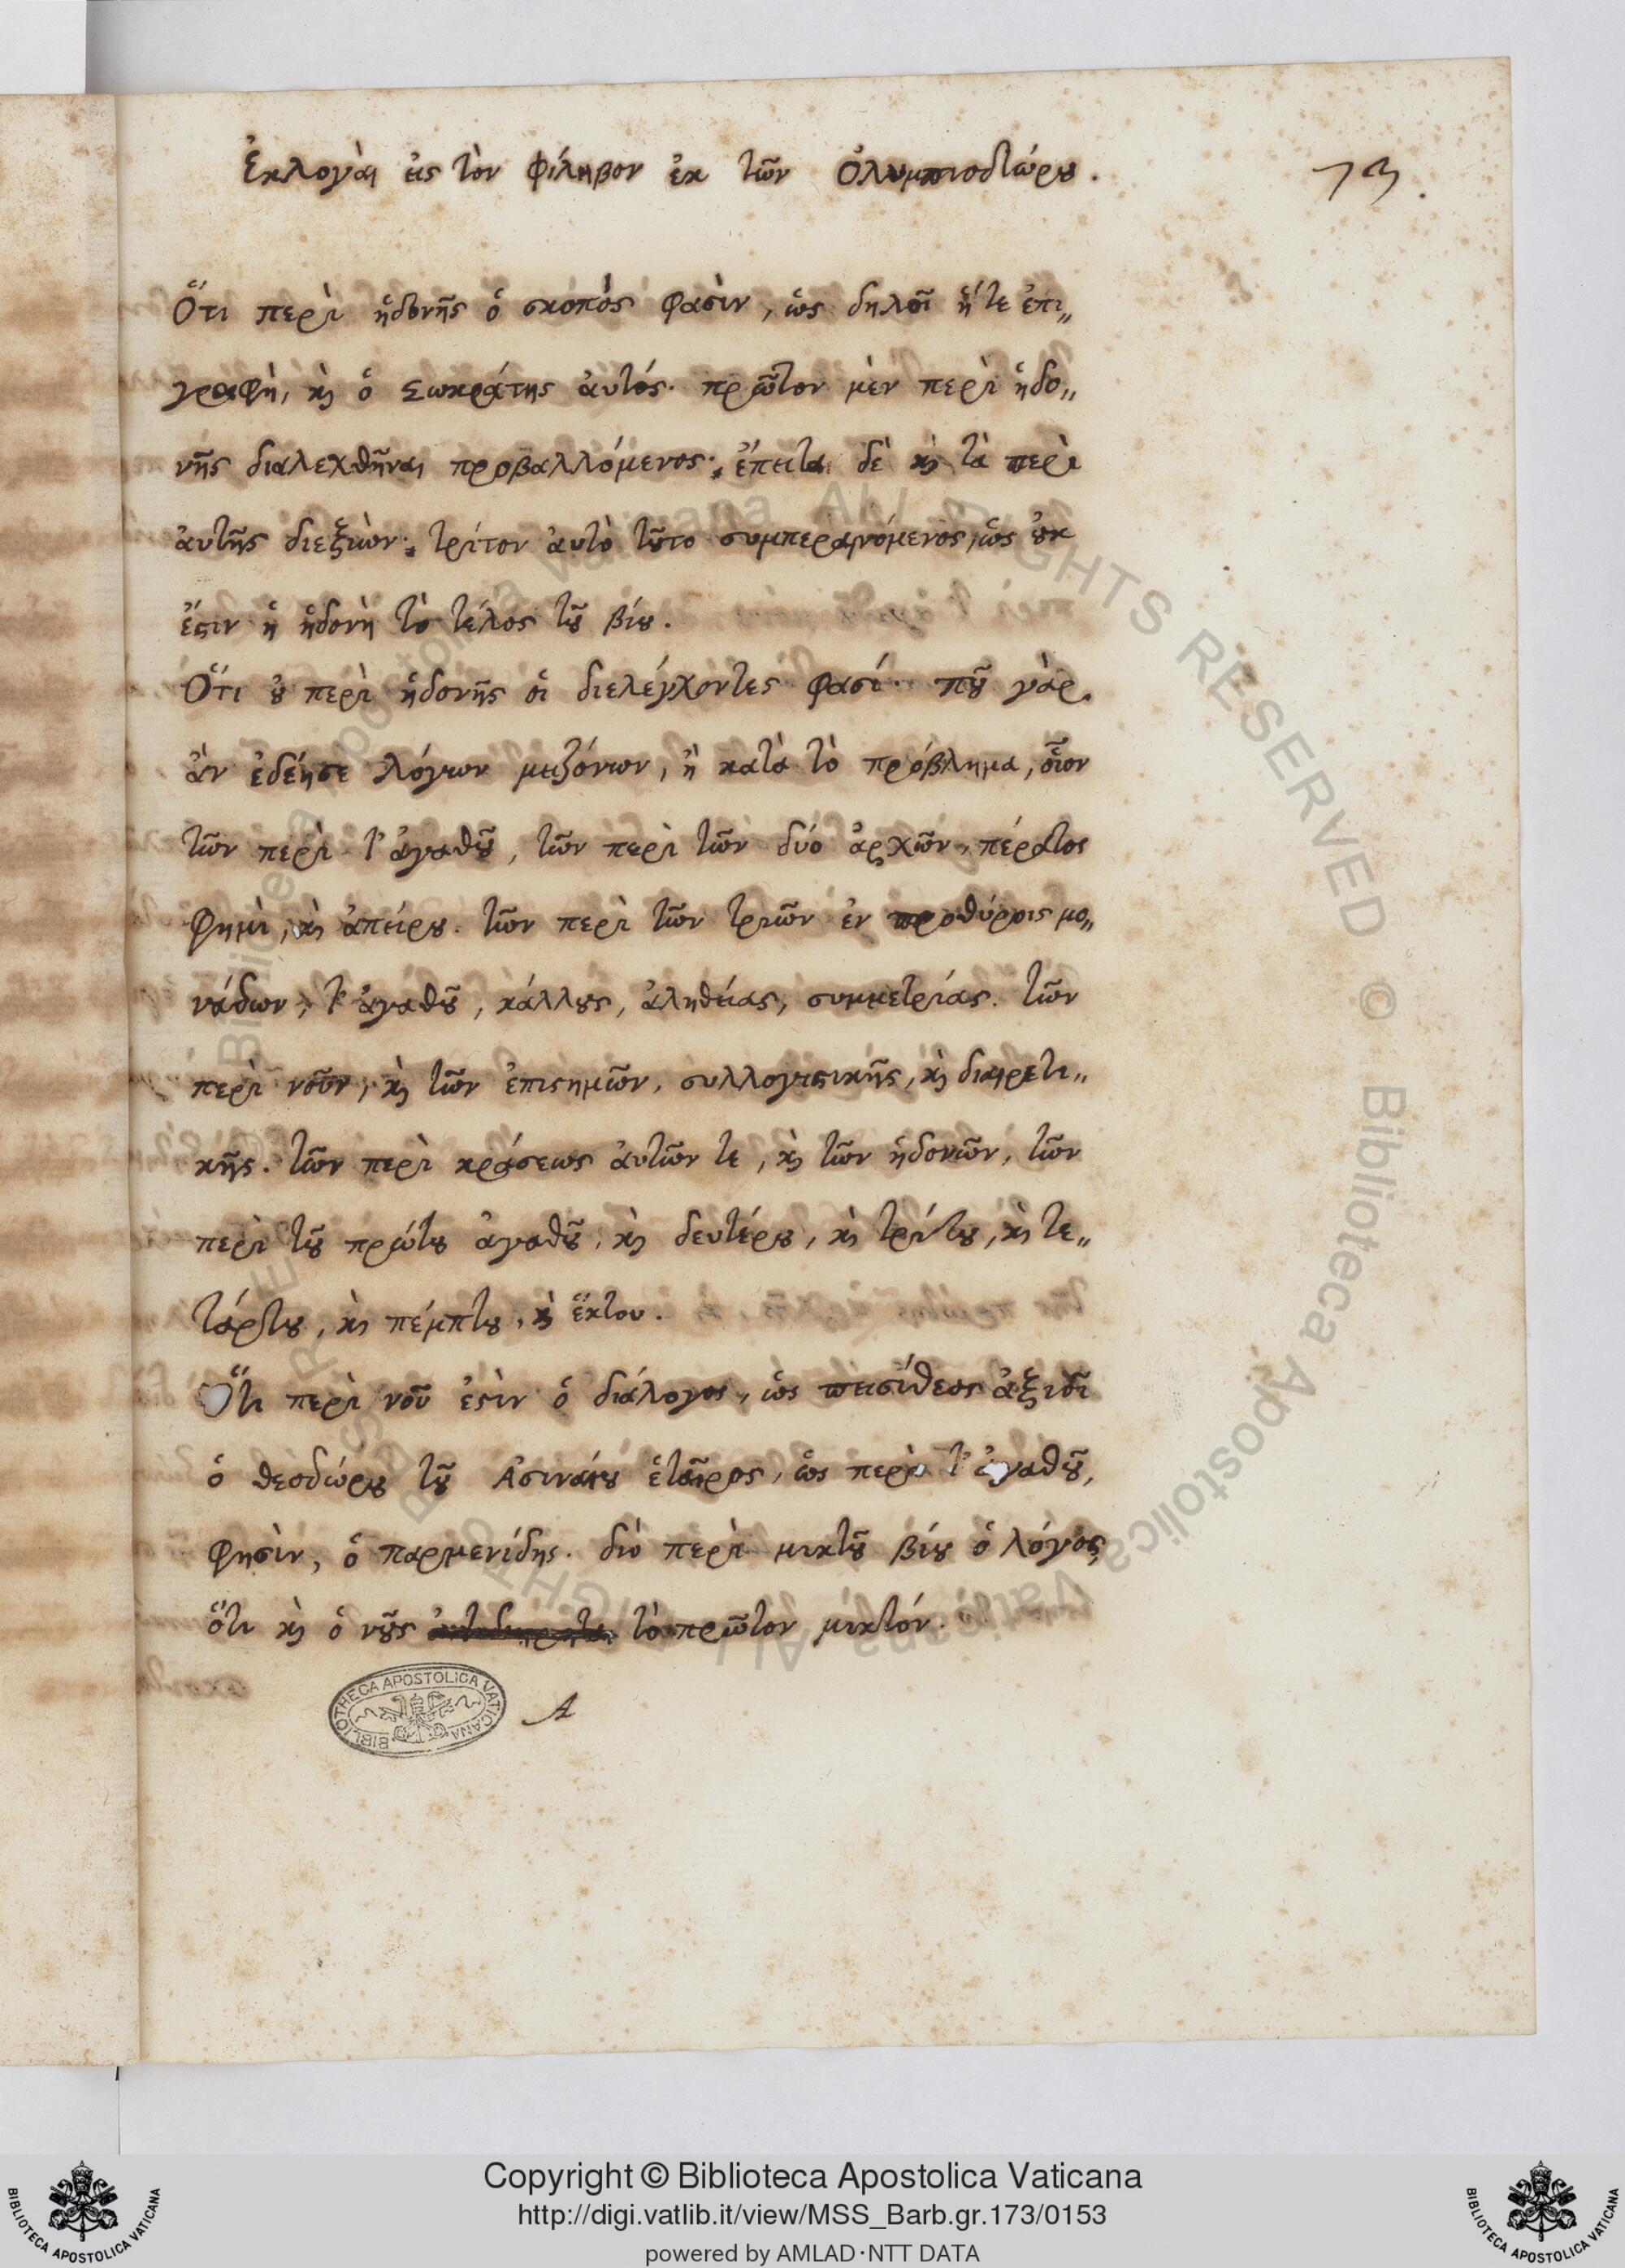 Ἐκλογὰι ἐις τὸν Φίληβον ἐκ τῶν Ὀλυμπιοδώρου.
73.
Ὅτι περὶ ἡδονῆς ὁ σκοπὸς φασὶν, ὡς δηλοῖ ἥ τε ἐπι„
γραφὴ, καὶ ὁ Σωκράτης ἀυτός. πρῶτον μὲν περὶ ἡδο„
νῆς διαλεχθῆναι προβαλλόμενος. ἔπειτα δὲ καὶ τὰ περὶ
ἀυτῆς διεξιὼν. τρίτον ἀυτὸ τοῦτο συμπεραινόμενος, ὡς ὀυκ
ἔστιν ἡ ἡδονὴ τὸ τέλος τοῦ βίου.
Ὅτι ὀυ περὶ ἡδονῆς ὁι διελέγχοντες φασί. ποῦ γὰρ
ἀν ἐδέησε λόγων μειζόνων, ἢ κατὰ τὸ πρόβλημα, οἷον
τῶν περὶ τ' ἀγαθοῦ, τῶν περὶ τῶν δύο ἀρχῶν, πέρατος
φημὶ, καὶ ἀπείρου. τῶν περὶ τῶν τριῶν ἐν προθύροις μο„
νάδων, τ' ἀγαθοῦ, κάλλους, ἀληθείας, συμμετρίας. τῶν
περὶ νοῦν, καὶ τῶν ἐπιστημῶν, συλλογιστικῆς, καὶ διαιρετι„
κῆς. τῶν περὶ κράσεως ἀυτῶν τε, καὶ τῶν ἡδονῶν, τῶν
περὶ τοῦ πρώτου ἀγαθοῦ, καὶ δευτέρου, καὶ τρίτου, καὶ τε„
τάρτου, καὶ πέμπτου, καὶ ἕκτου.
Ὅτι περὶ νοῦ ἐστὶν ὁ διάλογος, ὡς πεισίθεος ἀξιοῖ
ὁ θεοδώρου τοῦ Ἀσιναίου ἑταῖρος, ὡς περὶ τ' ἀγαθοῦ,
φησὶν, ὁ παρμενίδης. διὸ περὶ μικτοῦ βίου ὁ λόγος
ὅτι καὶ ὁ νοῦς τὸ πρῶτον μικτόν.
BIBLIOTHECA APOSTOLICA VATICANA
A
Biblioteca Apostolica Vaticana ALL RIGHTS RESERVED ©
Copyright © Biblioteca Apostolica Vaticana
http://digi.vatlib.it/view/MSS_Barb.gr.173/0153
powered by AMLAD·NTT DATA
BIBLIOTECA APOSTOLICA VATICANA
BIBLIOTECA APOSTOLICA VATICANA